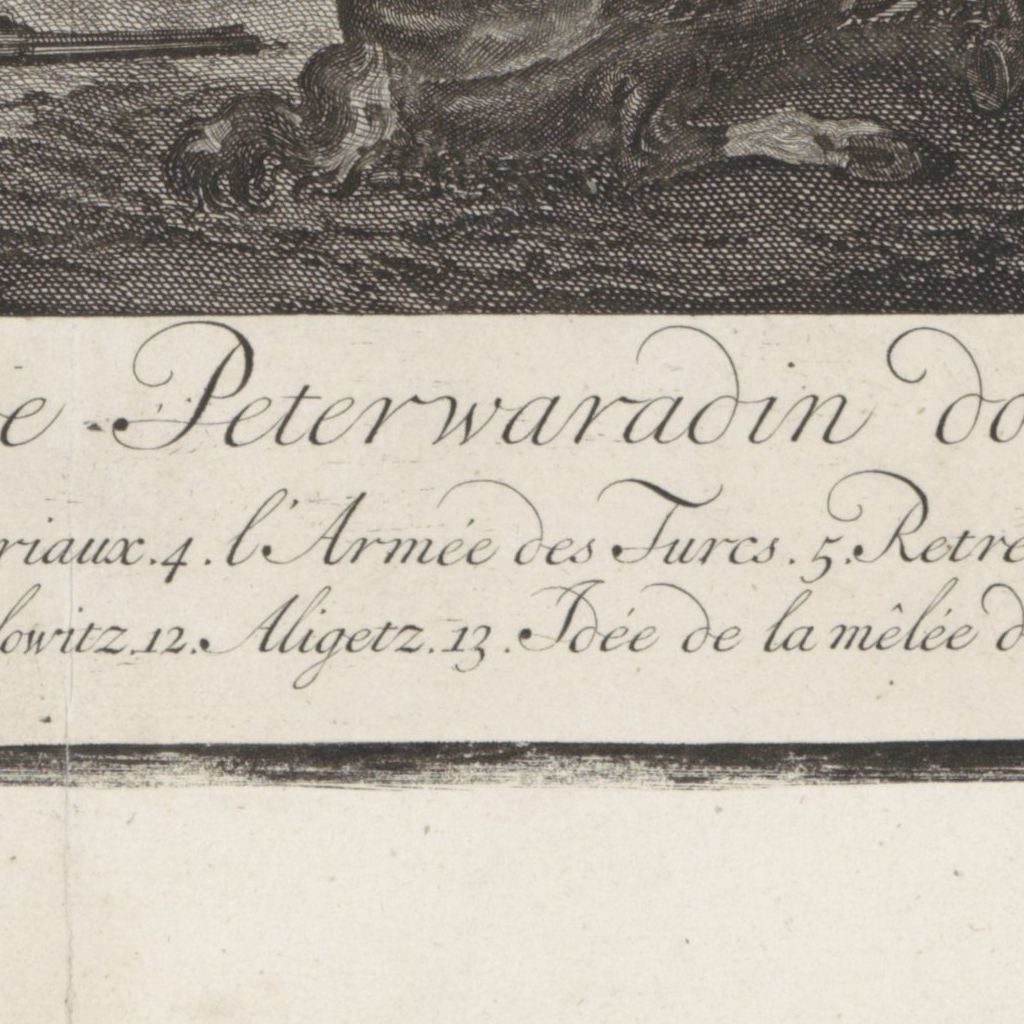 e Peterwaradin do
riaux. 4. l'Armée des Turcs. 5. Retre
lowitz. 12. Aligetz. 13. Idée de la mêlée d